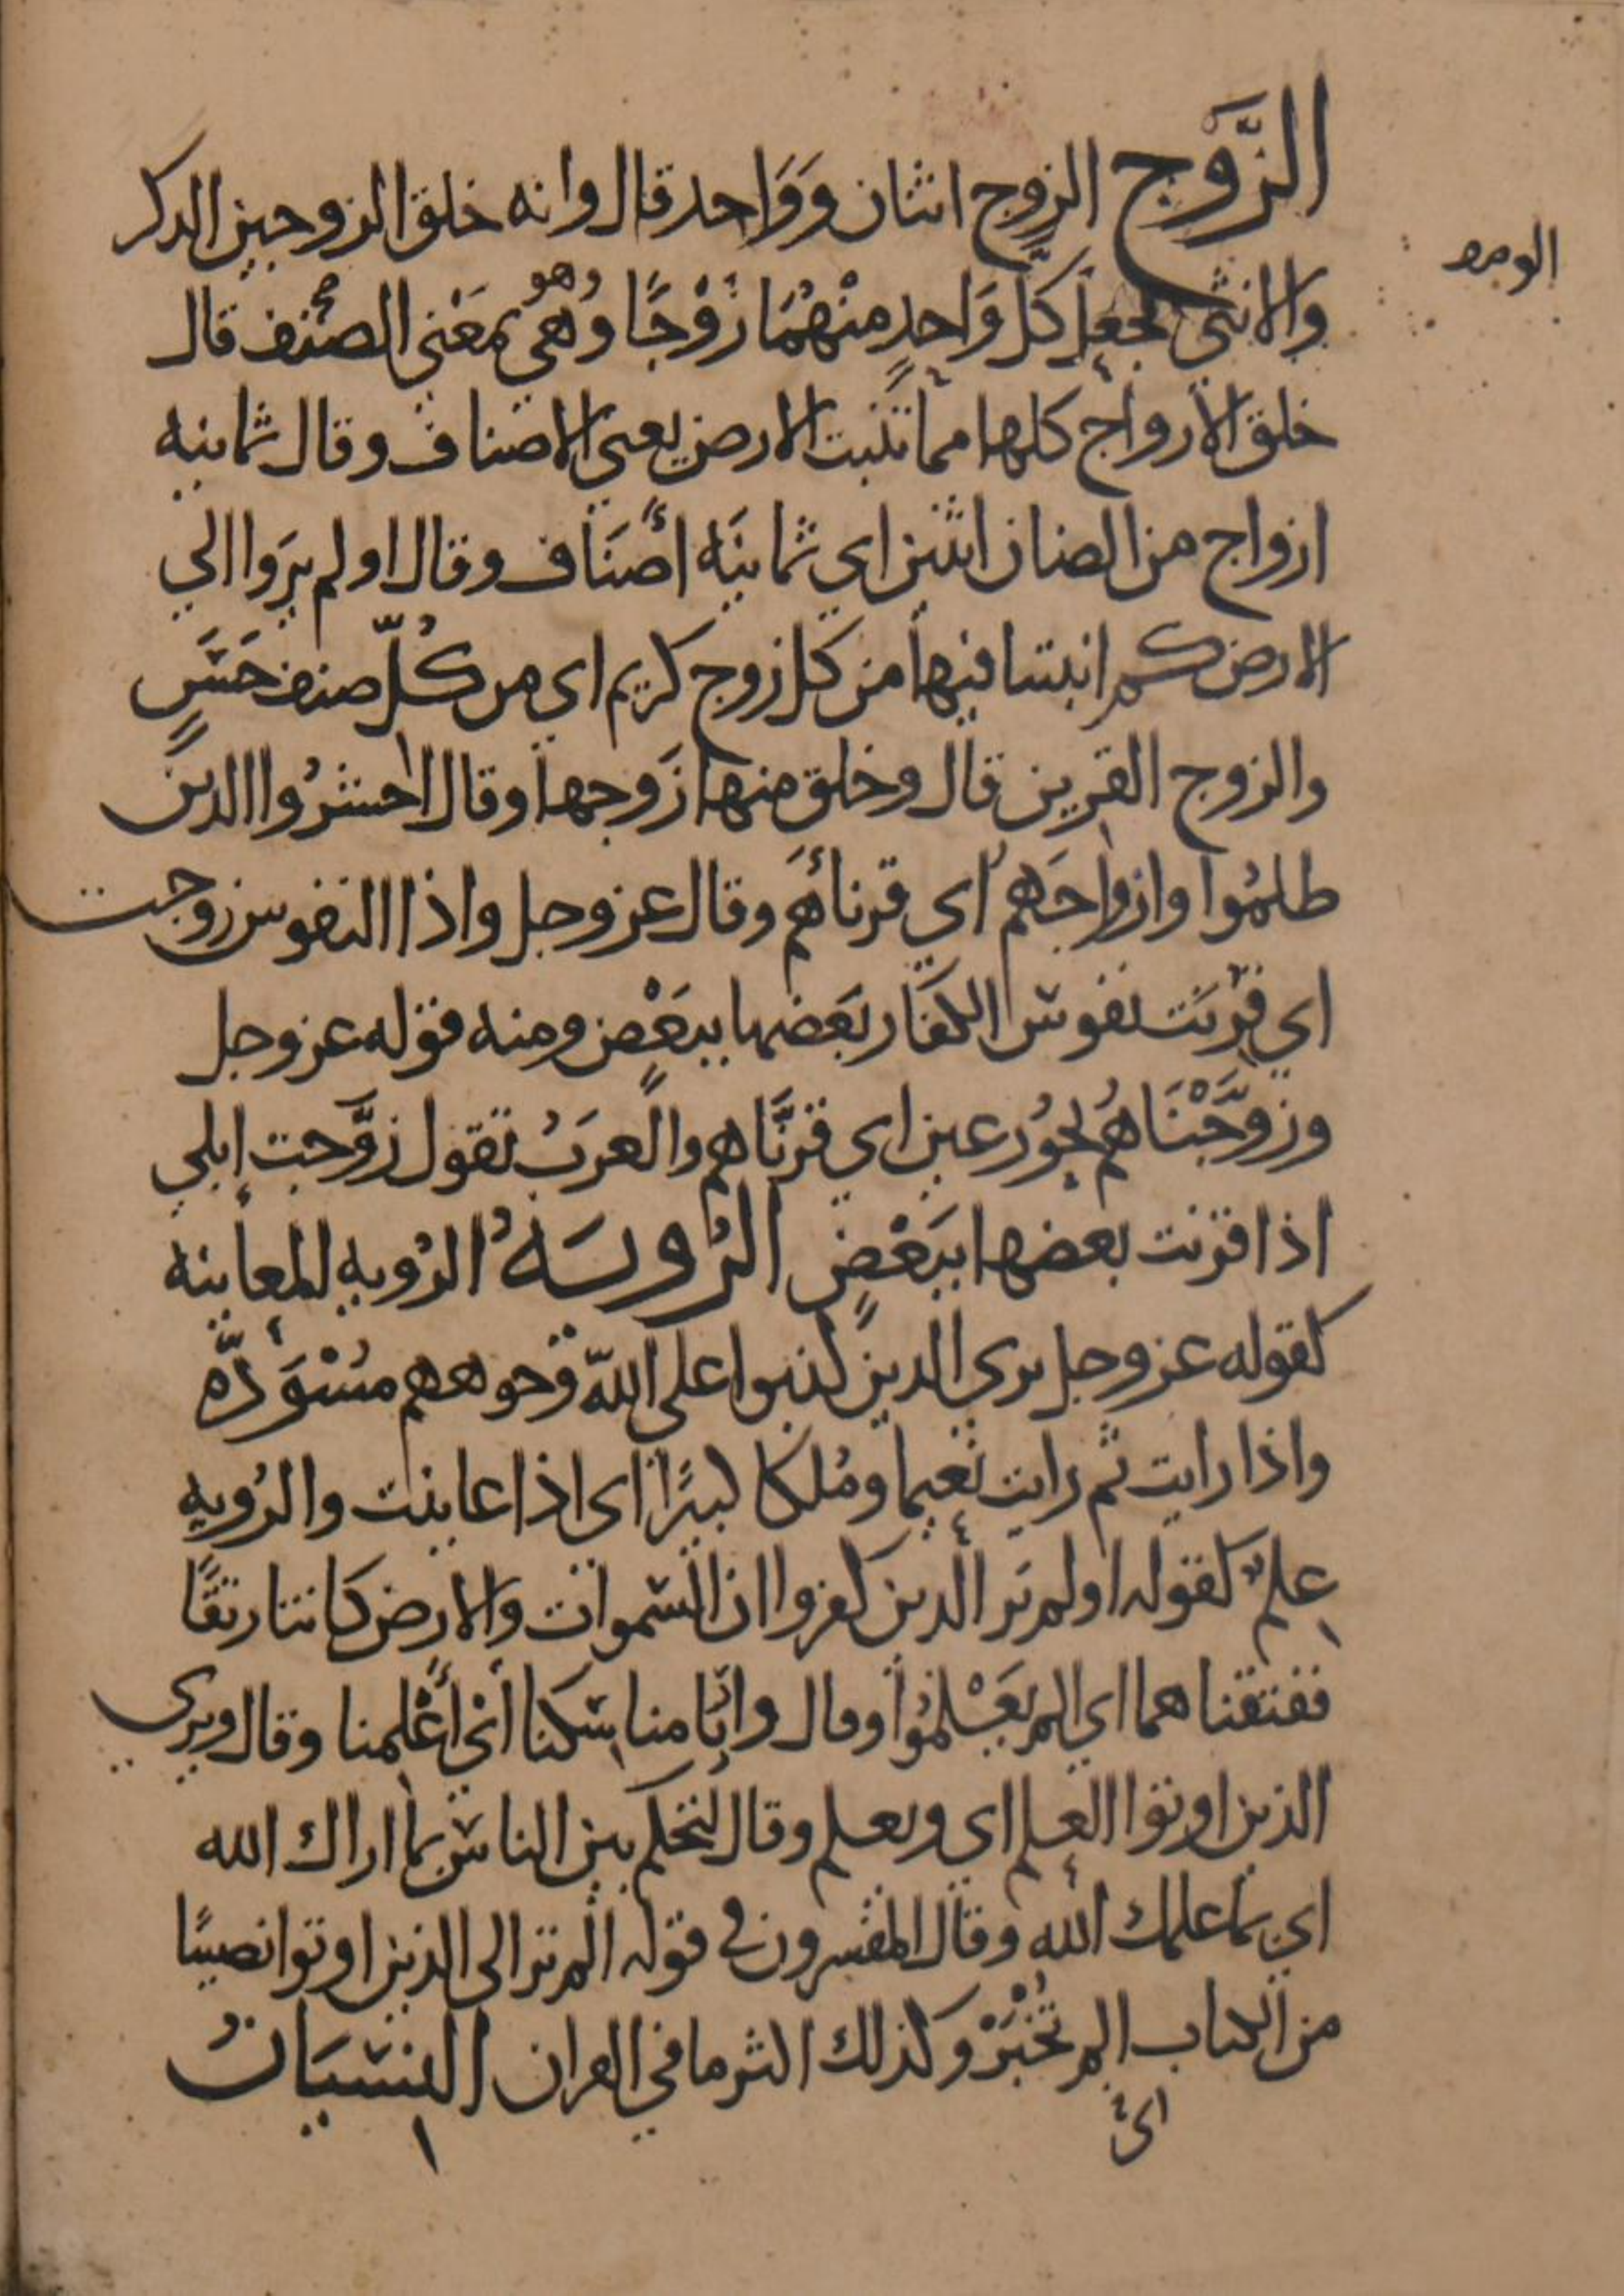 الزَّوَج الزوج اثنان وَوَاحد قال وانه خلق الزوجين الدكر
والانثى فجعل كلَّ وَاحدٍ منْهُمَا زَوْجًا وَهي بمَعْني الصنف قال
وهو
خلق الأزواج كلها مما تنبت الارض يعني الاصناف وقال ثمانيه
ازواج من الضان اثنين اي ثمانيَه أصنَاف وقال اولم يرَوا الي
الارض كم انبتنا فيها من كل زوج كريم اي من كُلّ صنف حَسَنٍ
والزوج القرين قال وخلق منها زَوجها وقال احشرُوا الدين
طلمُوا وازواجَهمُ اي قرنائَهم وقال عز وجل واذا النفوس زوجت
اي قرنَت نفوس الكفَار بَعَضها ببَعْضٍ ومنه قوله عز وجل
وَزَوَّجْنَاهُم بحُور عين اي قرنَّاهم والعرَبُ تقول زوَّجت إبلي
اذا قرنت بعضها ببَعْضٍ الرُويَهُ الرُويه المعاينه
كقوله عز وجل يرى الدين كذبوا على اللّه وجوههم مُسْوَدَّه
واذا رايت ثم رايت نَعيما ومُلكا كبيًرا اي اذا عاينت والرُويه
علمٌ كقوله اولم ير الدين كفروا ان السموات والارض كانتا رتقًا
ففتقناهما اي الم يَعْلمُوا وقال وارنا مناسكنا أي أعْلمنا وقال ويرى
الذين اوتوا العلم اي ويعلم وقال لتحكم بين الناس بما اراك الله
اي بما علمك الله وقال المفسرون في قوله الم تر الى الذين اوتوا نصيبًا
من الكتاب الم تُخْبَرْ وكذلك اكثر ما في القران النسيَانُ
اي